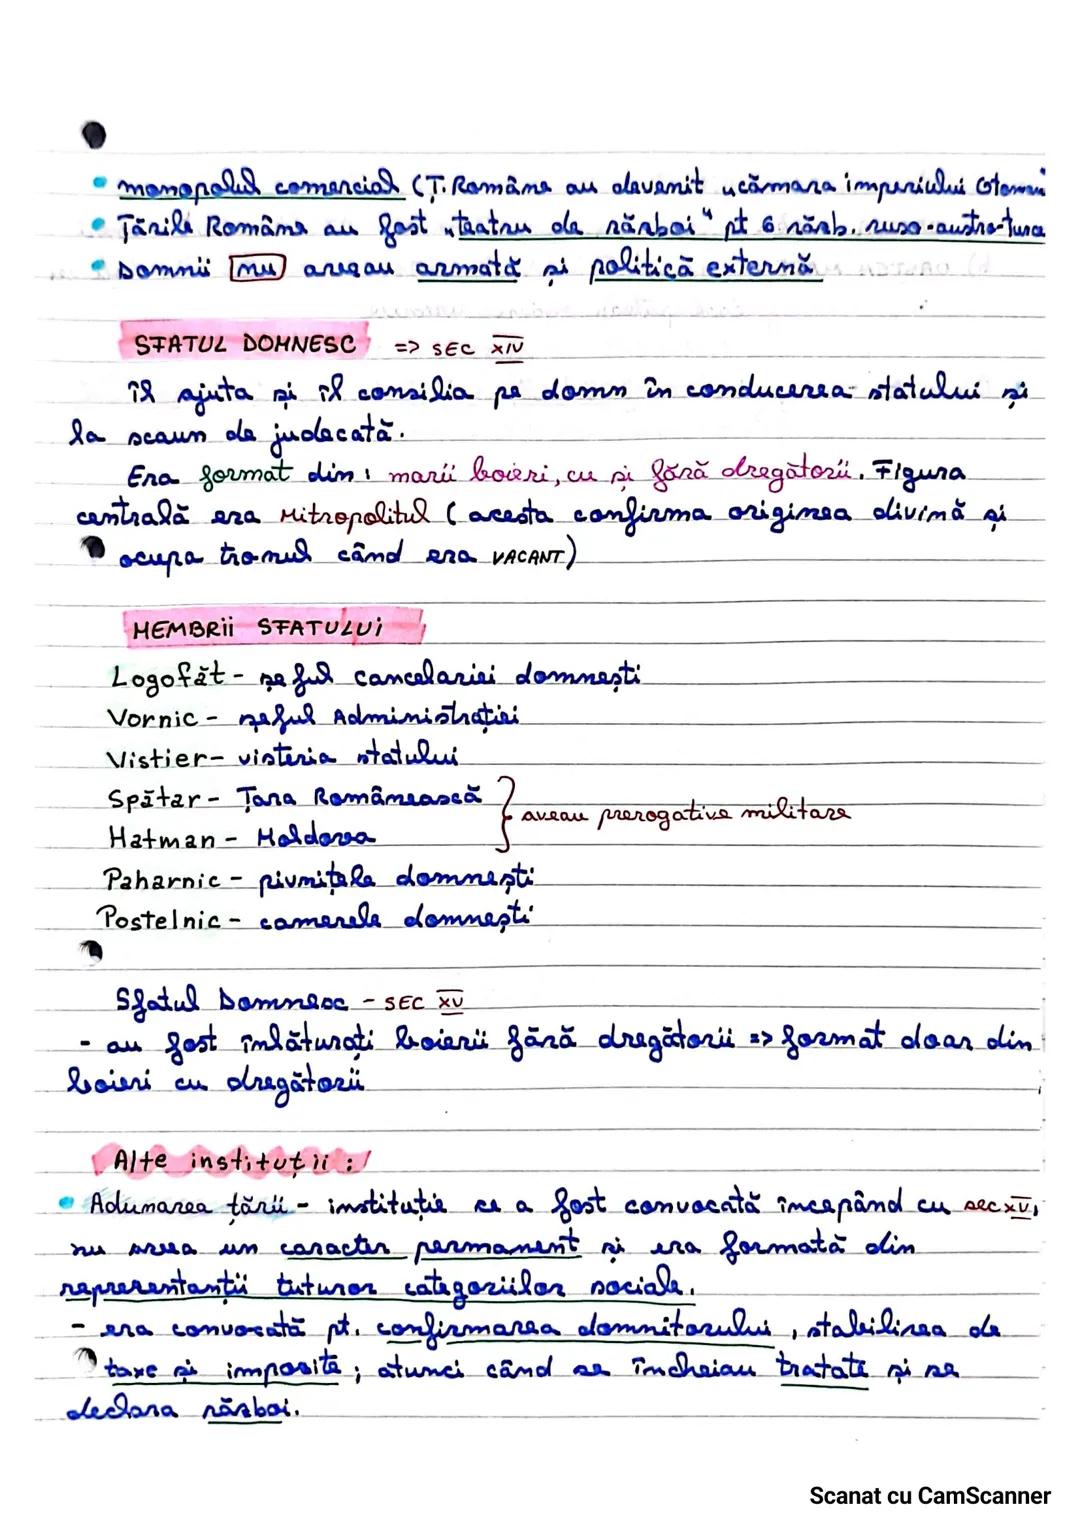 • monopolul comercial (Ț. Române au devenit „cămara imperiului Otoman"
• Țările Române au fost „teatru de război" pt 6 războ. ruso-austro-turce
• Domnii nu aveau armată și politică externă
SFATUL DOMNESC => SEC XIV
îl ajuta și îl consilia pe domn în conducerea statului și
la scaun de judecată.
Era format din: marii boieri, cu și fără dregătorii. Figura
centrală era Mitropolitul (acesta confirma originea divină și
ocupa tronul când era VACANT)
MEMBRII SFATULUI
Logofăt - șeful cancelariei domnești
Vornic - șeful Administrației
Vistier - visteria statului
Spătar - Țara Românească } aveau prerogative militare
Hatman - Moldova
Paharnic - pivnițele domnești
Postelnic - camerele domnești
Sfatul Domnesc - SEC XV
- au fost înlăturați boierii fără dregătorii => format doar din
boieri cu dregătorii
Alte instituții:
• Adunarea țării - instituție ce a fost convocată începând cu sec XV,
nu avea un caracter permanent și era formată din
reprezentanții tuturor categoriilor sociale.
- era convocată pt. confirmarea domnitorului, stabilirea de
taxe și impozite; atunci când se încheiau tratate și se
declara război.
Scanat cu CamScanner